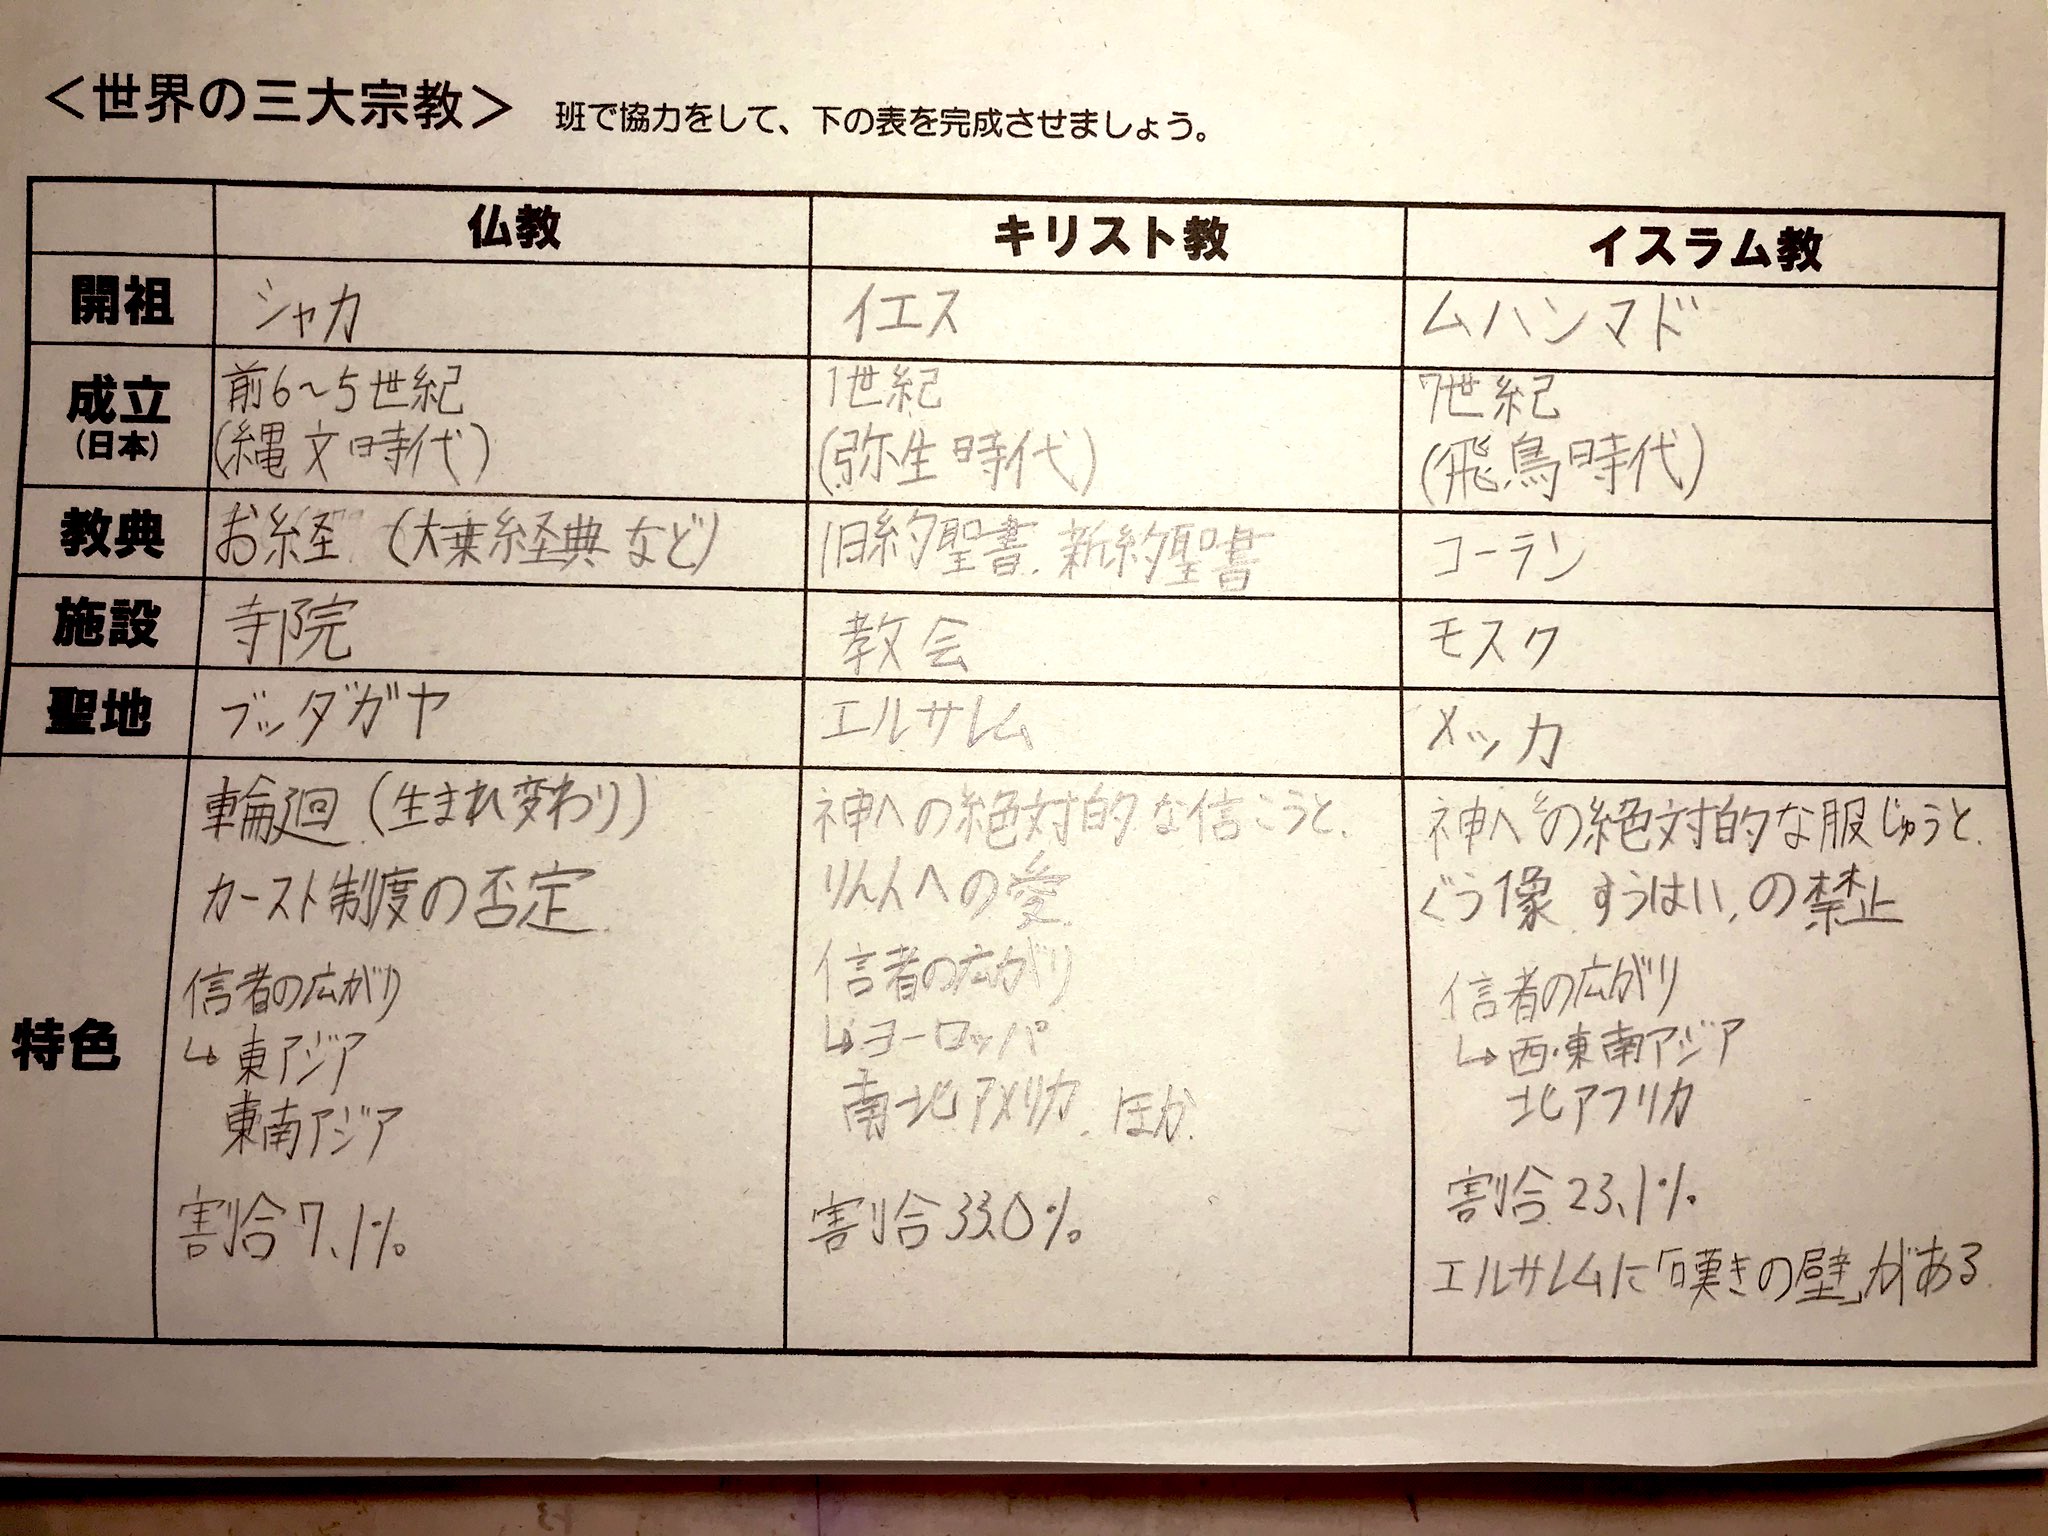 ＜世界の三大宗教＞ 班で協力をして、下の表を完成させましょう。
仏教 キリスト教 イスラム教
開祖 シャカ イエス ムハンマド
成立 前6〜5世紀 1世紀 7世紀
(日本) (縄文時代) (弥生時代) (飛鳥時代)
教典 お経 (大乗経典など) 旧約聖書、新約聖書 コーラン
施設 寺院 教会 モスク
聖地 ブッダガヤ エルサレム メッカ
特色
輪廻 (生まれ変わり)
カースト制度の否定
信者の広がり
↳東アジア
東南アジア
割合7.1%
神への絶対的な信こうと、
りん人への愛
信者の広がり
↳ヨーロッパ
南・北アメリカ、ほか
割合33.0%
神への絶対的な服じゅうと、
ぐう像すうはいの禁止
信者の広がり
↳西・東南アジア
北アフリカ
割合23.1%
エルサレムに「嘆きの壁」がある